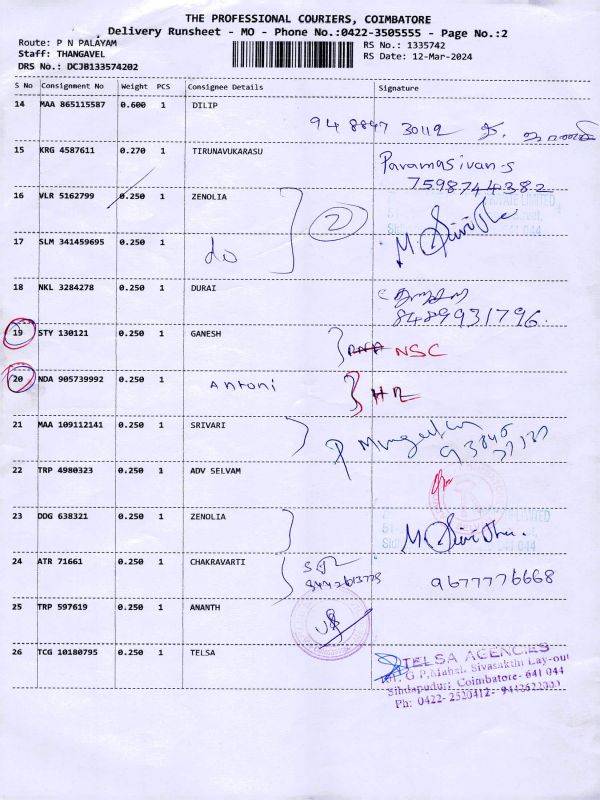 THE PROFESSIONAL COURIERS, COIMBATORE
Delivery Runsheet - MO - Phone No.:0422-3505555 - Page No.:2
Route: P N PALAYAM
Staff: THANGAVEL
DRS No.: DCJB133574202
RS No.: 1335742
RS Date: 12-Mar-2024
S No Consignment No Weight PCS Consignee Details Signature
14 MAA 865115587 0.600 1 DILIP
15 KRG 4587611 0.270 1 TIRUNAVUKARASU
Paramasivan-s
7598744382
16 VLR 5162799 0.250 1 ZENOLIA
2
17 SLM 341459695 0.250 1 do
18 NKL 3284278 0.250 1 DURAI
8489931796
19 STY 130121 0.250 1 GANESH
NSC
20 NDA 905739992 0.250 1 Antoni
21 MAA 109112141 0.250 1 SRIVARI
22 TRP 4980323 0.250 1 ADV SELVAM
23 DDG 638321 0.250 1 ZENOLIA
24 ATR 71661 0.250 1 CHAKRAVARTI
9677776668
25 TRP 597619 0.250 1 ANANTH
26 TCG 10180795 0.250 1 TELSA
TELSA AGENCIES
G.P. Mahal. Sivasakthi Lay-out
Sihdapudur, Coimbatore- 641 044
Ph: 0422- 2520412-